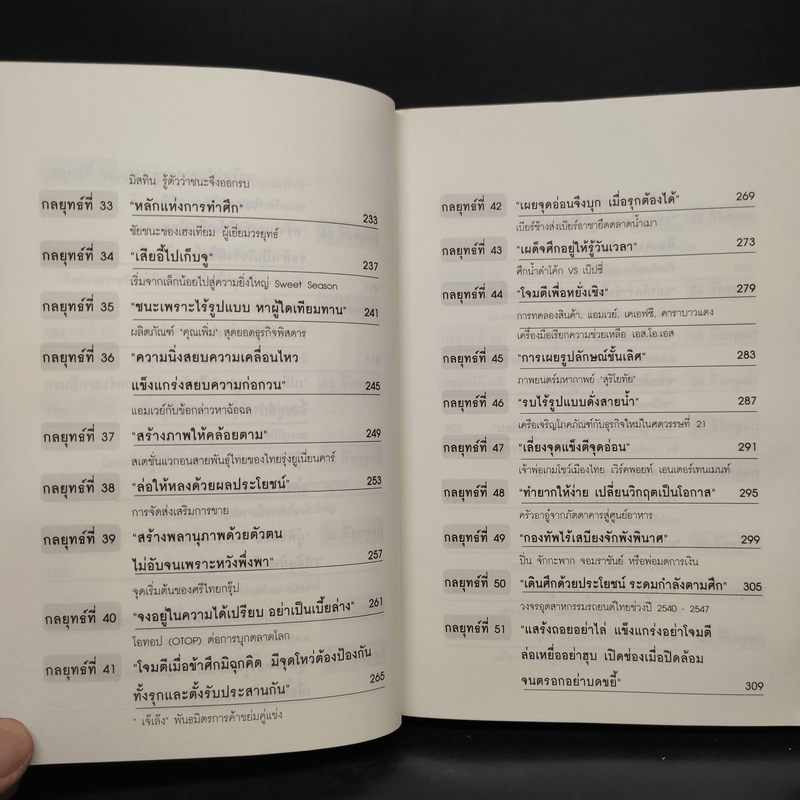 มิสทิน รู้ตัวว่าชนะจึงออกรบ
กลยุทธ์ที่ 33 "หลักแห่งการทำศึก" 233
ชัยชนะของเฮงเทียม ผู้เยี่ยมวรยุทธ์
กลยุทธ์ที่ 34 "เสียอี้ไปเก็บจู" 237
เริ่มจากเล็กน้อยไปสู่ความยิ่งใหญ่ Sweet Season
กลยุทธ์ที่ 35 "ชนะเพราะไร้รูปแบบ หาผู้ใดเทียมทาน" 241
ผลิตภัณฑ์ "คุณเพิ่ม" สุดยอดธุรกิจพิสดาร
กลยุทธ์ที่ 36 "ความนิ่งสยบความเคลื่อนไหว
แข็งแกร่งสยบความก่อกวน" 245
แอมเวย์กับข้อกล่าวหาฉ้อฉล
กลยุทธ์ที่ 37 "สร้างภาพให้คล้อยตาม" 249
สเตชั่นแวกอนสายพันธุ์ไทยของไทยรุ่งยูเนี่ยนคาร์
กลยุทธ์ที่ 38 "ล่อให้หลงด้วยผลประโยชน์" 253
การจัดส่งเสริมการขาย
กลยุทธ์ที่ 39 "สร้างพลานุภาพด้วยตัวตน
ไม่อับจนเพราะหวังพึ่งพา" 257
จุดเริ่มต้นของศรีไทยกรุ๊ป
กลยุทธ์ที่ 40 "จงอยู่ในความได้เปรียบ อย่าเป็นเบี้ยล่าง" 261
โอทอป (OTOP) ต่อการบุกตลาดโลก
กลยุทธ์ที่ 41 "โจมตีเมื่อข้าศึกมิฉุกคิด มีจุดโหว่ต้องป้องกัน
ทั้งรุกและตั้งรับประสานกัน" 265
" เจ๊เล้ง" พันธมิตรการค้าขย่มคู่แข่ง
กลยุทธ์ที่ 42 "เผยจุดอ่อนจึงบุก เมื่อรุกต้องได้" 269
เบียร์ช้างส่งเบียร์อาชายึดตลาดน้ำเมา
กลยุทธ์ที่ 43 "เผด็จศึกอยู่ให้รู้วันเวลา" 273
ศึกน้ำดำโค้ก VS เป๊ปซี่
กลยุทธ์ที่ 44 "โจมตีเพื่อหยั่งเชิง" 279
การทดลองสินค้า, แอมเวย์, เคเอฟซี, คาราบาวแดง
เครื่องมือเรียกความช่วยเหลือ เอส.โอ.เอส
กลยุทธ์ที่ 45 "การเผยรูปลักษณ์ชั้นเลิศ" 283
ภาพยนตร์มหากาพย์ "สุริโยทัย"
กลยุทธ์ที่ 46 "รบไร้รูปแบบดั่งสายน้ำ" 287
เครือเจริญโภคภัณฑ์กับธุรกิจใหม่ในศตวรรษที่ 21
กลยุทธ์ที่ 47 "เลี่ยงจุดแข็งตีจุดอ่อน" 291
เจ้าพ่อเกมโชว์เมืองไทย เวิร์คพอยท์ เอนเตอร์เทนเมนท์
กลยุทธ์ที่ 48 "ทำยากให้ง่าย เปลี่ยนวิกฤตเป็นโอกาส" 295
ครัวอาอู๋จากภัตตาคารสู่ศูนย์อาหาร
กลยุทธ์ที่ 49 "กองทัพไร้เสบียงจักพังพินาศ" 299
ปิ่น จักกะพาก จอมราชันย์ หรือพ่อมดการเงิน
กลยุทธ์ที่ 50 "เดินศึกด้วยประโยชน์ ระดมกำลังตามศึก" 305
วงจรอุตสาหกรรมรถยนต์ไทยช่วงปี 2540 - 2547
กลยุทธ์ที่ 51 "แสร้งถอยอย่าไล่ แข็งแกร่งอย่าโจมตี
ล่อเหยื่ออย่าฮุบ เปิดช่องเมื่อปิดล้อม
จนตรอกอย่าบดขยี้" 309